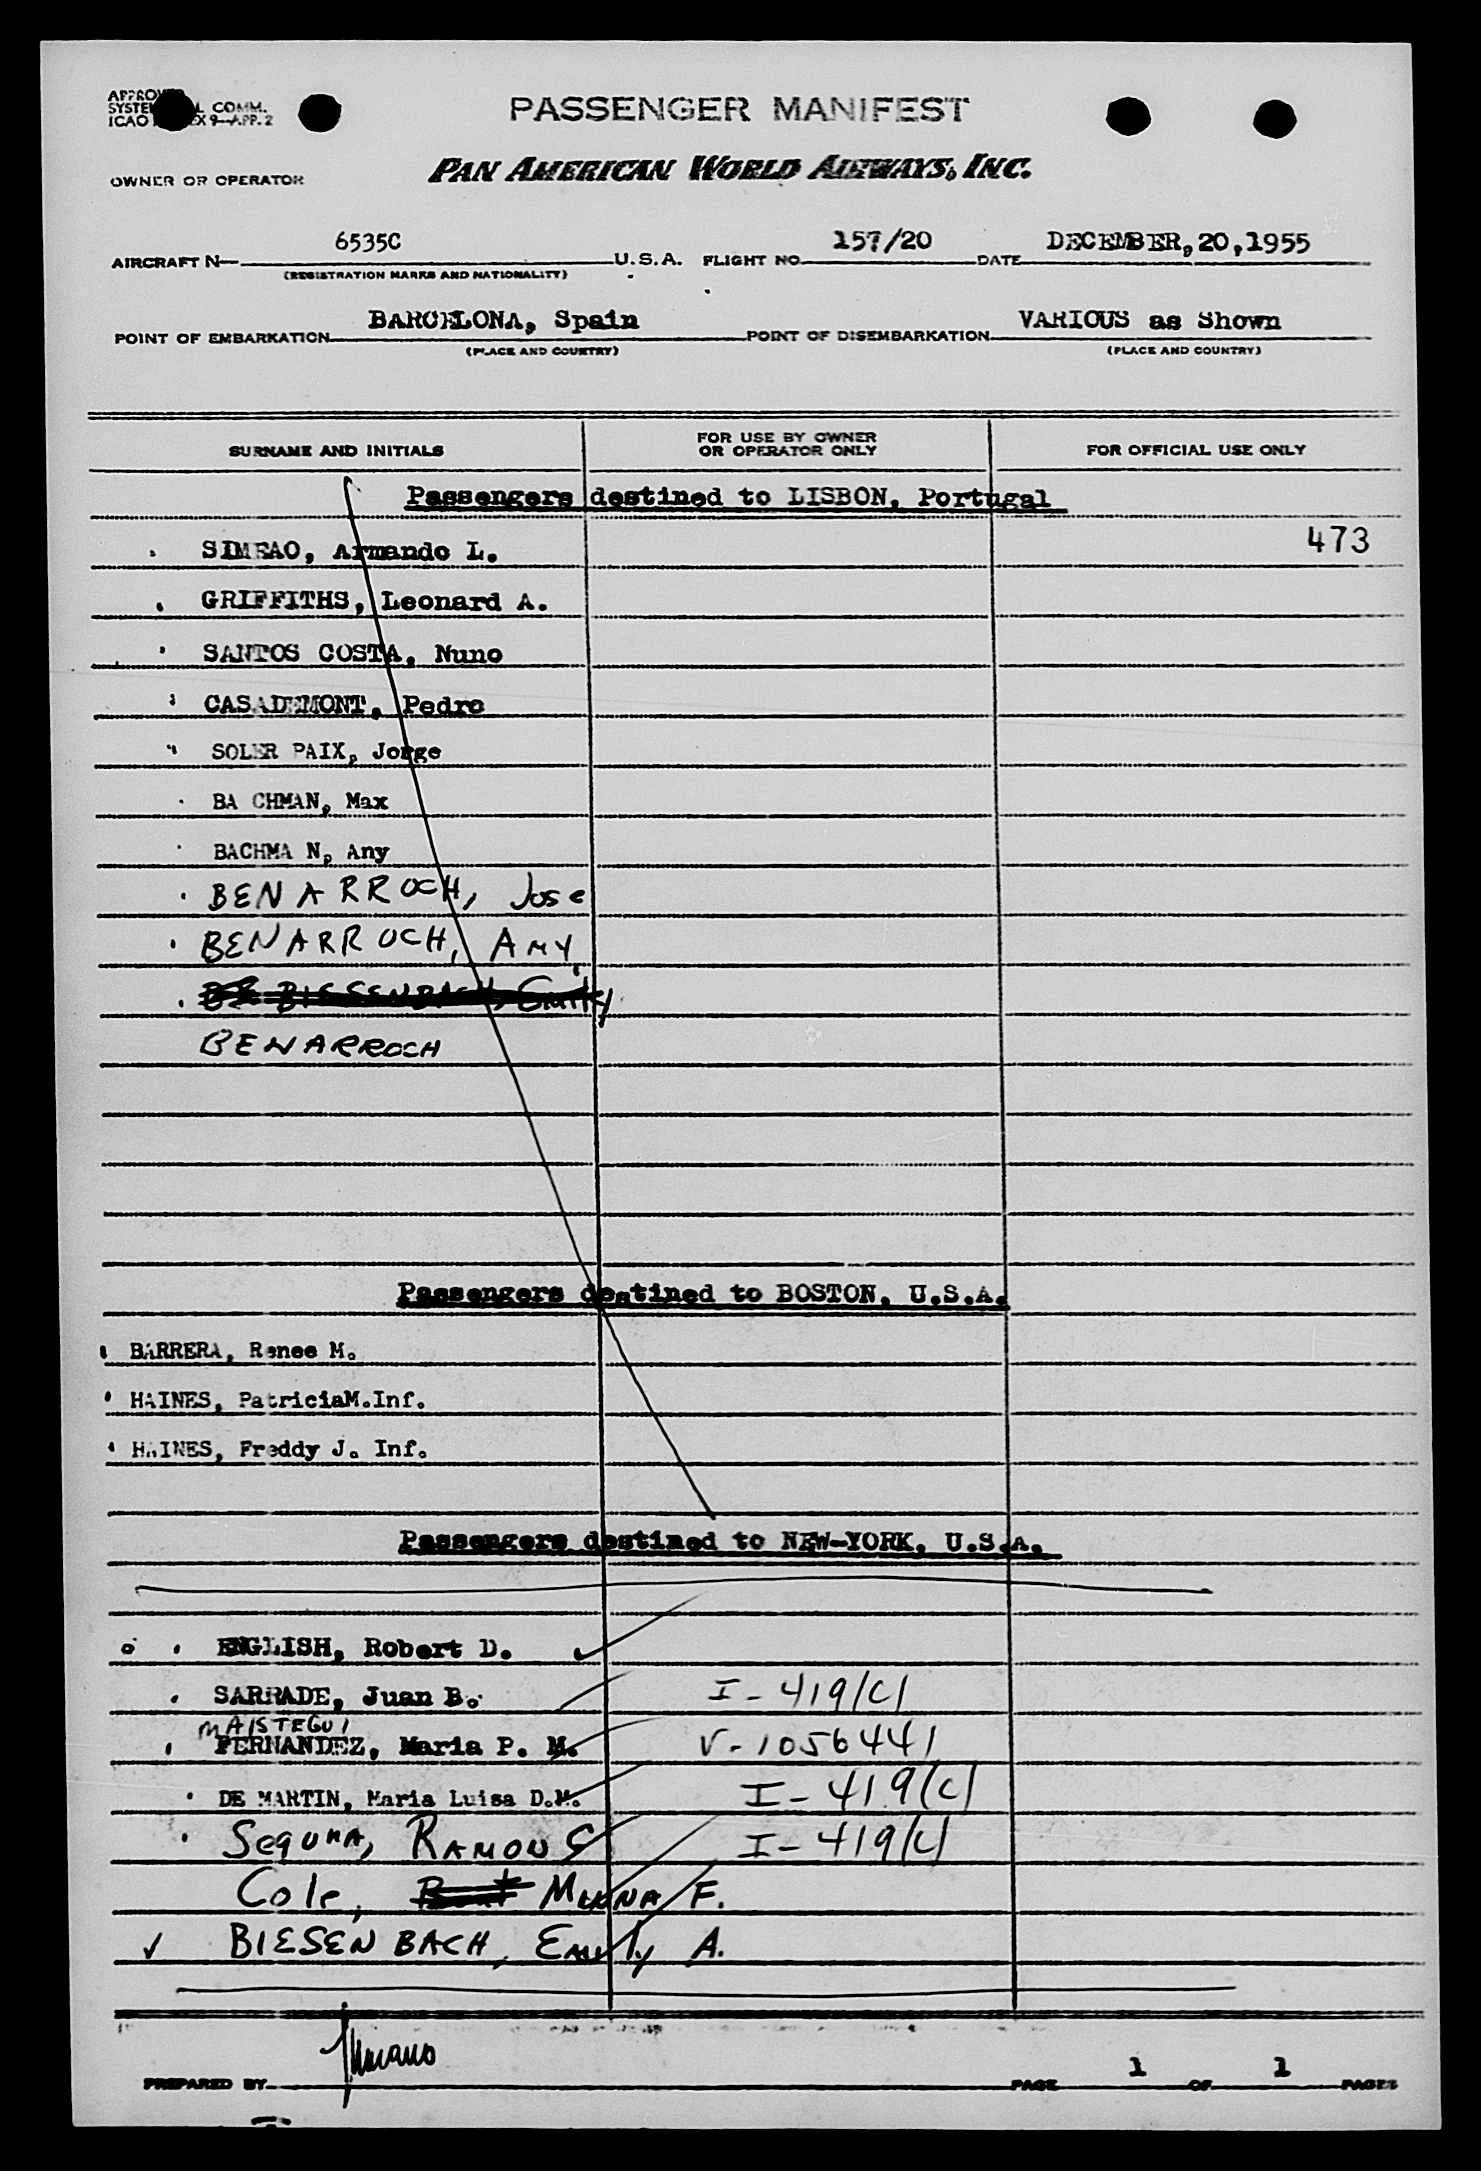 PASSENGER MANIFEST
PAN AMERICAN WORLD AIRWAYS, INC.
OWNER OR OPERATOR
AIRCRAFT N 6535C U.S.A. FLIGHT NO. 157/20 DATE DECEMBER,20,1955
(REGISTRATION MARKS AND NATIONALITY)
POINT OF EMBARKATION BARCELONA, Spain POINT OF DISEMBARKATION VARIOUS as Shown
(PLACE AND COUNTRY) (PLACE AND COUNTRY)
SURNAME AND INITIALS FOR USE BY OWNER OR OPERATOR ONLY FOR OFFICIAL USE ONLY
Passengers destined to LISBON, Portugal
SIMEAO, Armando L. 473
GRIFFITHS, Leonard A.
SANTOS COSTA, Nuno
CASADEMONT, Pedro
SOLER PAIX, Jorge
BA CHMAN, Max
BACHMA N, Any
BENARROCH, Jose
BENARROCH, AMY
BIESENBACH, Emily
BENARROCH
Passengers destined to BOSTON, U.S.A.
BARRERA, Renee M.
HAINES, PatriciaM.Inf.
HAINES, Freddy J. Inf.
Passengers destined to NEW-YORK, U.S.A.
ENGLISH, Robert D.
SARRADE, Juan B. I-419(c)
MAISTEGUI
FERNANDEZ, Maria P. M. V-1056441
DE MARTIN, Maria Luisa D.M. I-419(c)
Segura, RAMON G I-419(c)
Cole, F.
BIESENBACH, Emily A.
PREPARED BY PAGE 1 OF 1 PAGES